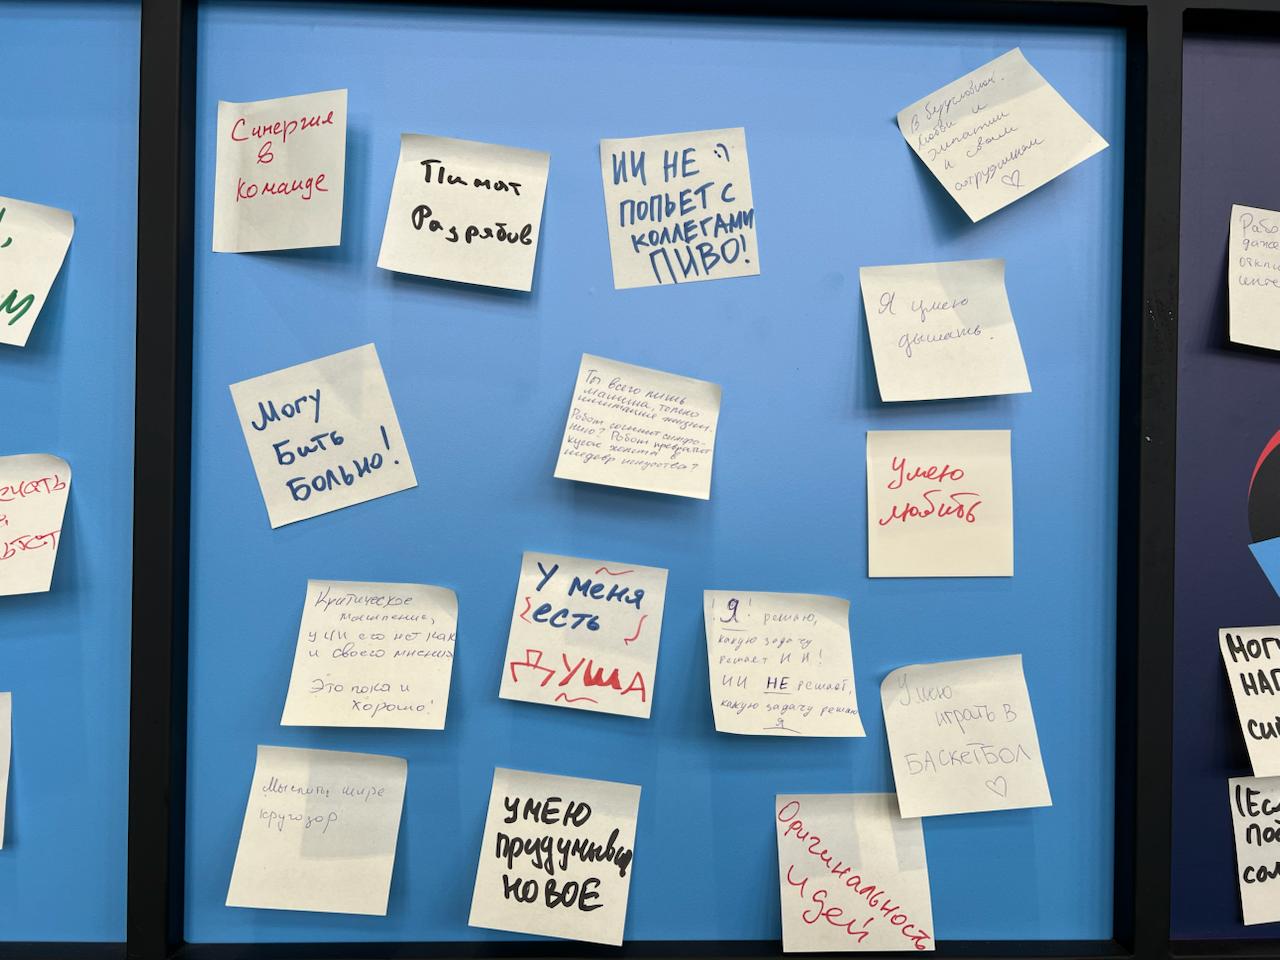 Синергия
в
команде
Пимат
Разрябов
ИИ НЕ :)
ПОПЬЕТ С
КОЛЛЕГАМИ
ПИВО!
В безусловной
любви и
эмпатии
к своим
сотрудникам
♡
Я умею
дышать.
Могу
Бить
БОЛЬНО!
Ты всего лишь
машина, только
имитация жизни.
Робот сочинит симфо-
нию? Робот превратит
кусок холста в
шедевр искусства?
Умею
любить
Критическое
мышление,
у ИИ его нет как
и своего мнения
Это пока и
хорошо!
У меня
есть
ДУША
! Я ! решаю,
какую задачу
решает ИИ!
ИИ НЕ решает,
какую задачу решаю
Я
Умею
играть в
БАСКЕТБОЛ
♡
Мыслить шире
кругозор
УМЕЮ
придумывать
НОВОЕ
Оригинальность
идей